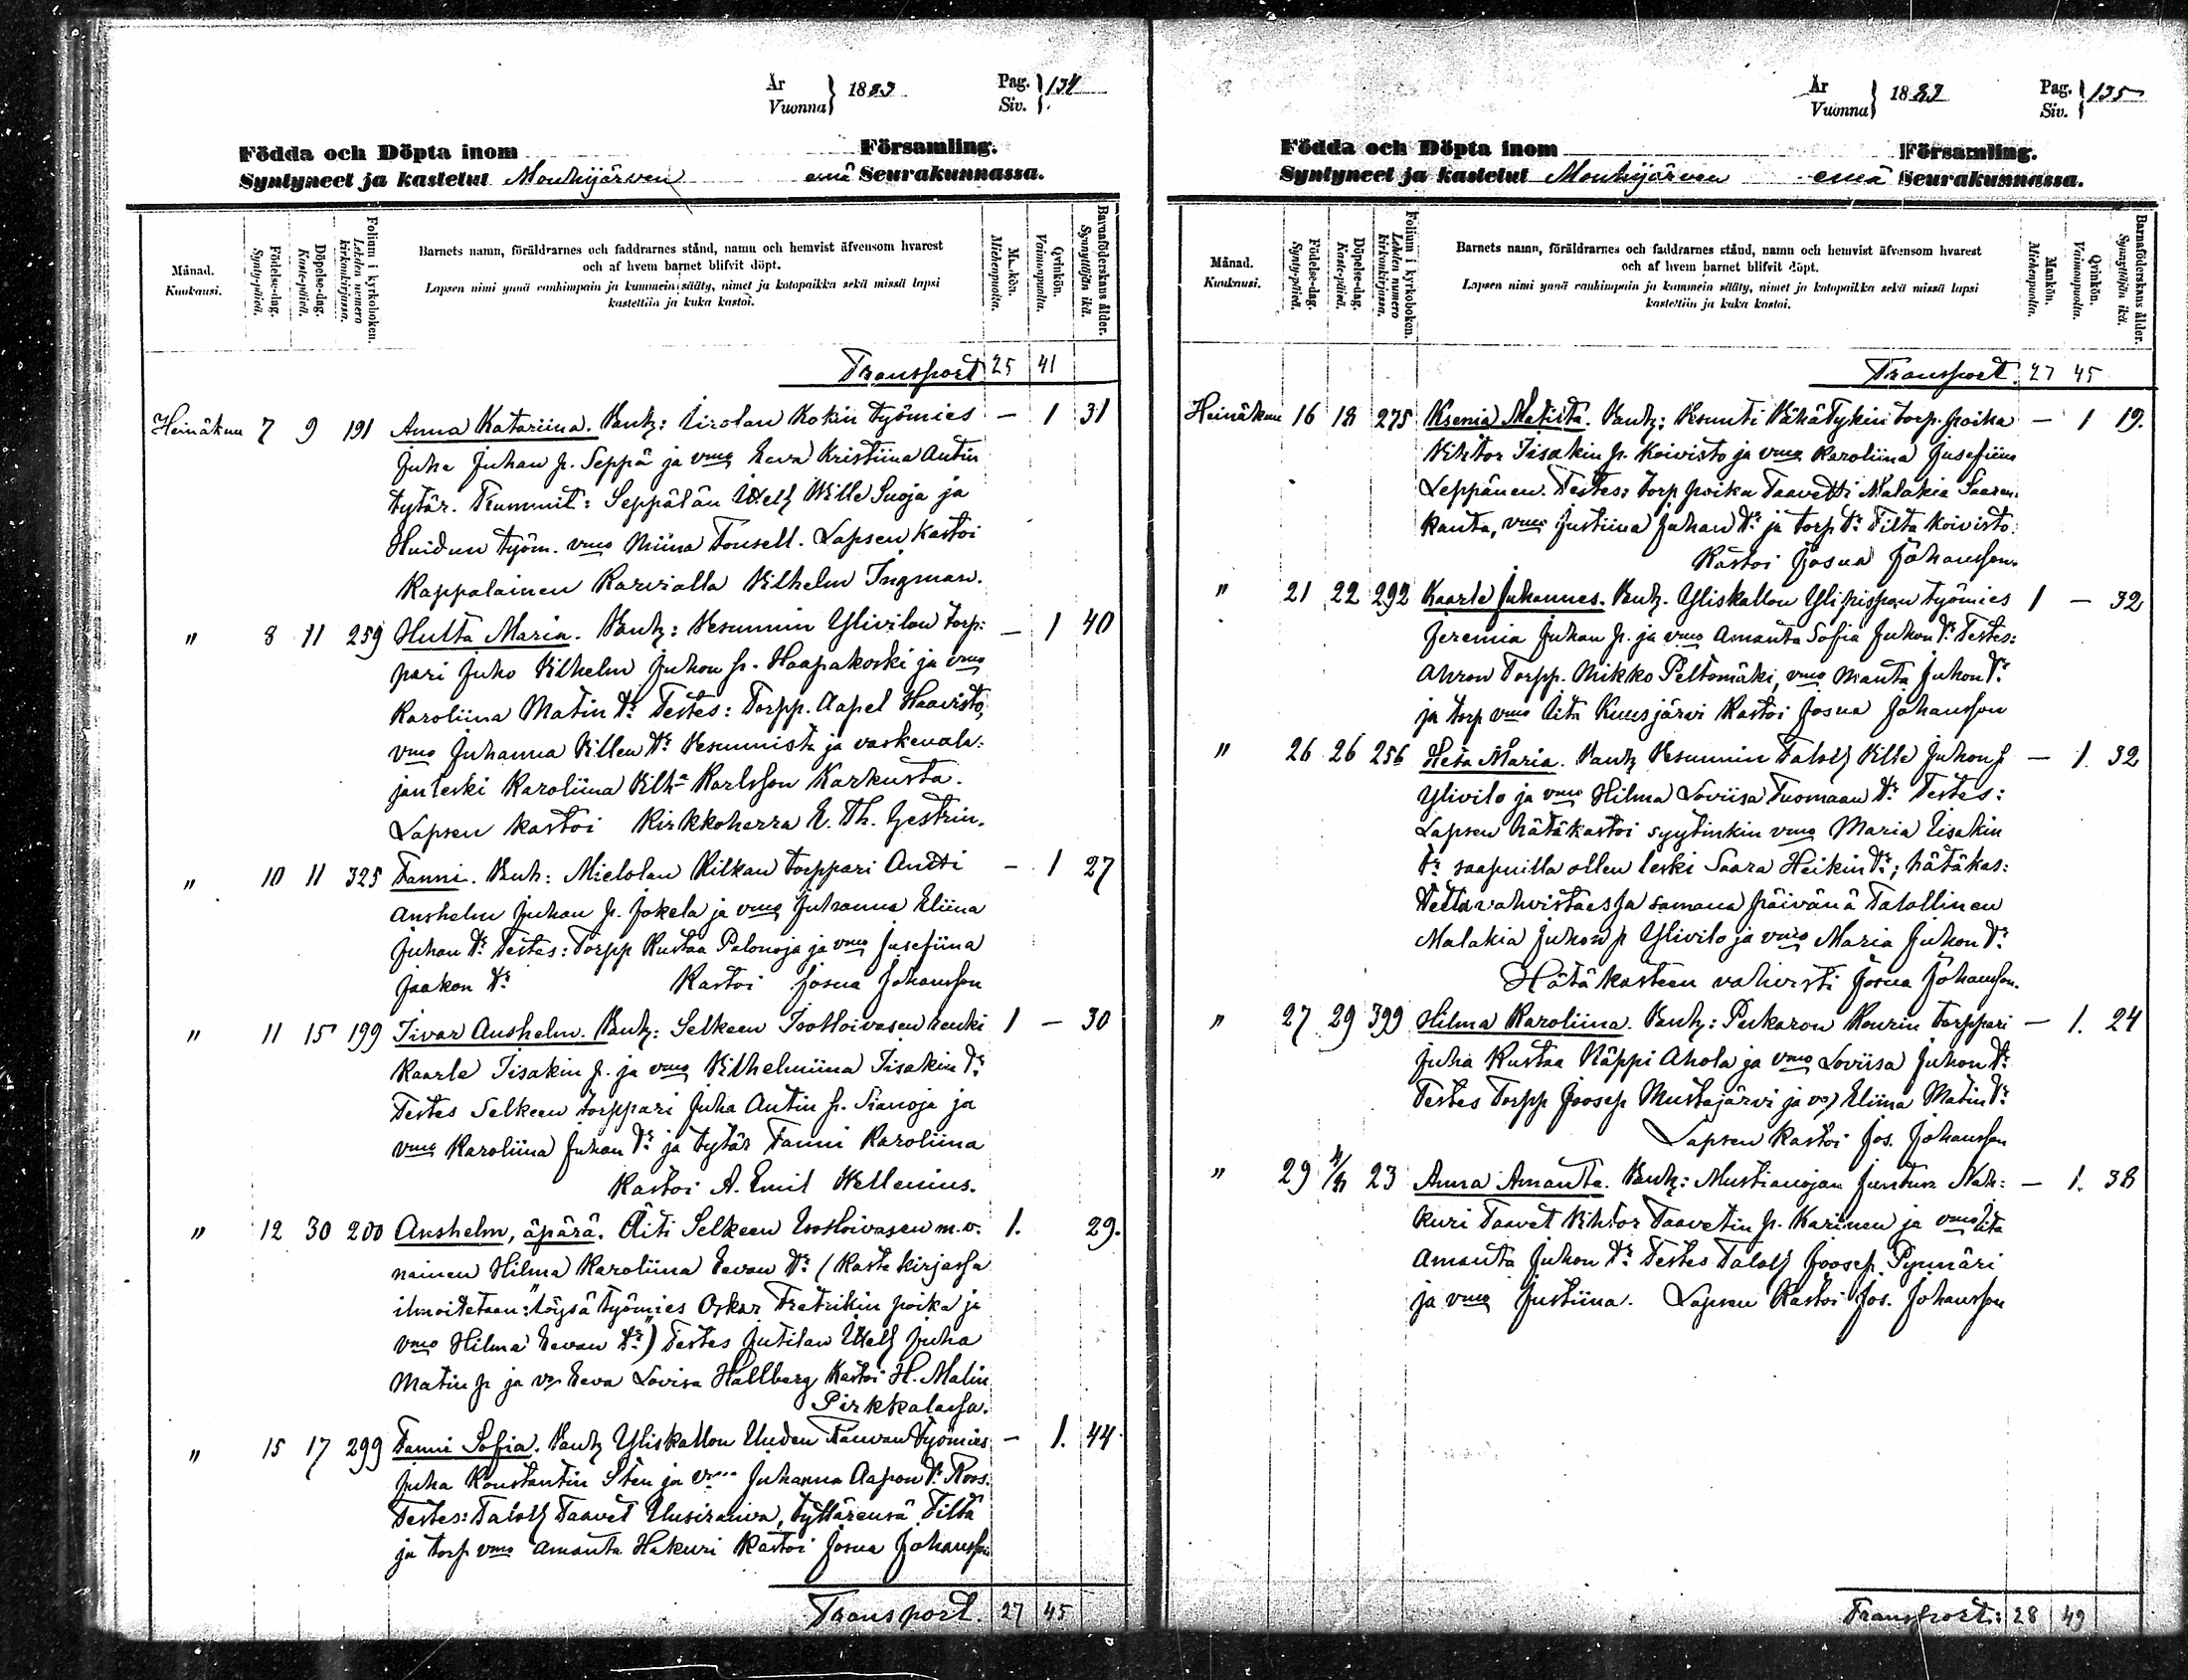 År
Vuonna } 1883. Pag.
Siv. } 134
Födda och Döpta inom Församling.
Syntyneet ja kastetut Mouhijärven emä Seurakunnassa.
Månad.
Kuukausi.
Födelse-dag.
Synty-päivä.
Döpelse-dag.
Kaste-päivä.
Folium i kyrkoboken.
Lehden numero
kirkonkirjassa.
Barnets namn, föräldrarnes och faddrarnes stånd, namn och hemvist äfvensom hvarest
och af hvem barnet blifvit döpt.
Lapsen nimi ynnä vanhimpain ja kummein sääty, nimet ja kotopaikka sekä missä lapsi
kastettiin ja kuka kastoi.
Mankön.
Miehenpuolta.
Qvinkön.
Vaimonpuolta.
Barnaföderskans ålder.
Synnyttäjän ikä.
Transport 25 41
Heinäkuu 7 9 191 Anna Katariina. Vanh: Uirolan Kokin työmies — 1 31
Juha Juhan p. Seppä ja vmo Eeva Kristiina Antin
tytär. Kummit: Seppälän Ville Suoja ja
Huidun työm. vmo Miina Fonsell. Lapsen kastoi
Kappalainen Karvialla Vilhelm Ingman.
" 8 11 259 Hulta Maria. Vanh: Vesunnin Ylivilon torp: — 1 40
pari Juho Vilhelm Juhon p. Haapakoski ja vmo
Karoliina Matin tr. Testes: Torpp. Aapel Haavisto,
vmo Juhanna Villen tr Vesunnista ja vaskenvala:
jan leski Karoliina Vilh. Karlsson Karkusta.
Lapsen kastoi Kirkkoherra E. Th. Gestrin.
" 10 11 325 Fanni. Vanh: Mielolan Kilkan torppari Antti — 1 27
Anshelm Juhan p. Jokela ja vmo Juhanna Eliina
Juhan tr Testes: Torpp Kustaa Palonoja ja vmo Jusefiina
Jaakon tr Kastoi Josua Johansson
" 11 15 199 Iivar Anshelm. Vanh: Selkeen IsoHoivasen renki 1 — 30
Kaarle Iisakin p. ja vmo Vilhelmiina Iisakin tr
Testes Selkeen torppari Juha Antin p. Sianoja ja
vmo Karoliina Juhan tr ja tytär Fanni Karoliina
Kastoi A. Emil Wellenius.
" 12 30 200 Anshelm, äpärä. Äiti Selkeen IsoHoivasen m.v. 1. 29.
nainen Hilma Karoliina Eevan tr (Kastekirjassa
ilmoitetaan: "löysä työmies Oskar Fretrikin poika ja
vmo Hilma Eevan tr") Testes Jutilan Juha
Matin p ja vo Eeva Lovisa Hallberg Kastoi H. Malin
Pirkkalassa.
" 15 17 299 Fanni Sofia. Vanh Yliskallon Uuden Rauvan työmies — 1. 44
Juha Konstantin Sten ja vmo Juhanna Aapon tr Roos.
Testes: Taavet Uusirauva, tyttärensä Tilta
ja torp vmo Amanta Hakuri Kastoi Josua Johansson
Transport. 27 45
År
Vuonna } 1883 Pag.
Siv. } 135
Födda och Döpta inom Församling.
Syntyneet ja kastetut Mouhijärven emä Seurakunnassa.
Månad.
Kuukausi.
Födelse-dag.
Synty-päivä.
Döpelse-dag.
Kaste-päivä.
Folium i kyrkoboken.
Lehden numero
kirkonkirjassa.
Barnets namn, föräldrarnes och faddrarnes stånd, namn och hemvist äfvensom hvarest
och af hvem barnet blifvit döpt.
Lapsen nimi ynnä vanhimpain ja kummein sääty, nimet ja kotopaikka sekä missä lapsi
kastettiin ja kuka kastoi.
Mankön.
Miehenpuolta.
Qvinkön.
Vaimonpuolta.
Barnaföderskans ålder.
Synnyttäjän ikä.
Transport. 27 45
Heinäkuu 16 18 275 Ksenia Matilta. Vanh: Vesunti VähäTykin torp. poika — 1 19.
Vihtor Iisakin p. Koivisto ja vmo Karoliina Jusefiina
Leppänen. Testes: torp poika Taavetti Malakia Saaren:
kanta, vmo Justiina Juhan tr ja torp tr Tilta Koivisto.
Kastoi Josua Johansson.
" 21 22 292 Kaarle Juhannes. Vanh. Yliskallon Ylipispan työmies 1 — 32
Jeremia Juhan p. ja vmo Amanta Sofia Juhon tr. Testes:
Ahron Torpp. Mikko Peltomäki, vmo Manta Juhon tr
ja torp vmo Iita Kuusjärvi Kastoi Josua Johansson
" 26 26 256 Heta Maria. Vanh Vesunnin Ville Juhon p — 1. 32
Ylivilo ja vmo Hilma Loviisa Tuomaan tr Testes:
Lapsen hätäkastoi syytinkin vmo Maria Iisakin
tr saapuilla ollen leski Saara Heikin tr; hätäkas:
tetta vahvistaessa samana päivänä Talollinen
Malakia Juhon p Ylivilo ja vmo Maria Juhon tr
Hätäkasteen vahvisti Josua Johansson.
" 27 29 399 Hilma Karoliina. Vanh: Pukaron Kourin torppari — 1. 24
Juha Kustaa Näppi Ahola ja vmo Loviisa Juhon tr
Testes Torpp Joosep Mustajärvi ja vo Eliina Matin tr
Lapsen kastoi Jos. Johansson
" 29 23 Anna Amanta. Vanh: Mustianojan Juntun Nah: — 1. 38
kuri Taavet Vihtor Taavetin p. Karinen ja vmo Iita
Amanta Juhon tr Testes Joosep. Pynnäri
ja vmo Justiina. Lapsen Kastoi Jos. Johansson
Transport: 28 49